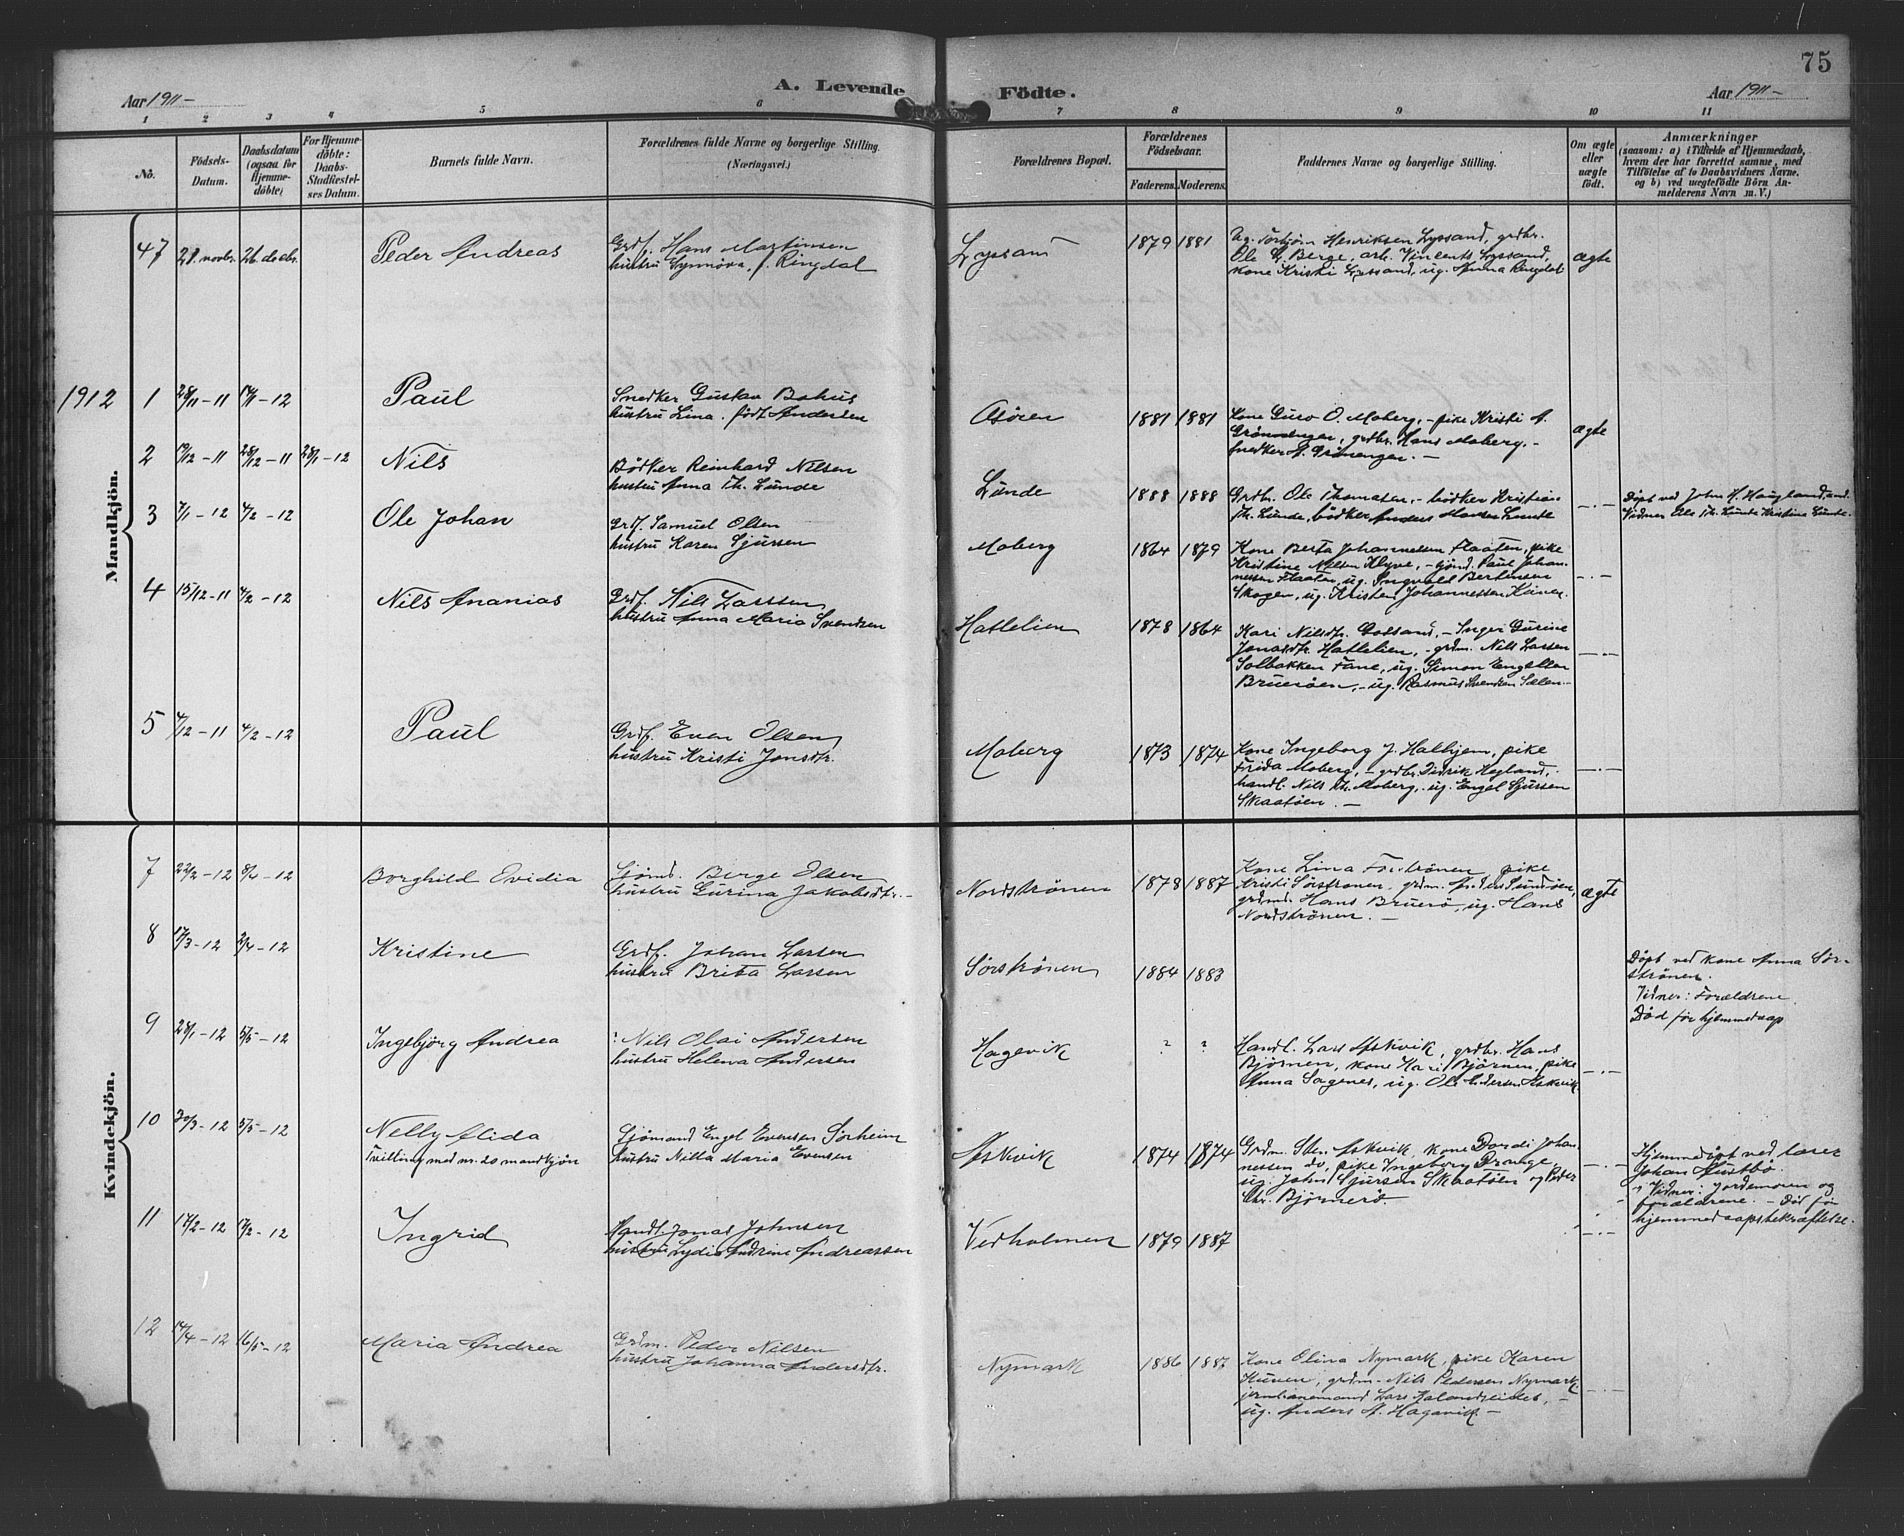 75
A. Levende Födte.
Aar 1911-
Aar 1911-
1 2 3 4 5 6 7 8 9 10 11
No.
Födsels-
Datum.
Daabsdatum
(ogsaa for
Hjemme-
döbte)
For Hjemme-
döbte:
Daabs-
Stadfæstel-
ses Datum.
Barnets fulde Navn.
Forældrenes fulde Navne og borgerlige Stilling.
(Næringsvei.)
Forældrenes Bopæl.
Forældrenes
Födselsaar.
Faderens. Moderens.
Faddernes Navne og borgerlige Stilling.
Om ægte
eller
uægte
födt.
Anmærkninger
(saasom: a) i Tilfælde af Hjemmedaab,
hvem der har forrettet samme, med
Tilföielse af to Daabsvidners Navne.
og b) ved uægtefödte Börn An-
melderens Navn m. V.)
Mandkjön.
47 21. novbr. 26. decbr.
Peder Andreas
Grdf. Hans Martinsen
hustru Synnöva, f. Ringdal
Lyssand
1879 1881
Ug. Torbjörn Henriksen Lyssand, grdbr.
Ole L. Berge, arb. Vincents Lyssand,
kone Kristi Lyssand, ug. Anna Ringdal
ægte
1912
1 28/11-11 14/1-12
Paul
Snedker Gustav Bahus
hustru Lina, födt Andersen
Osören
1881 1881
Kone Guro O. Moberg, - pike Kristi A.
Grönengen, grdbr. Hans Moberg. -
snedker A. Grönengen. -
ægte
2 19/12-11 28/12-11 28/1-12
Nils
Bödker Reinhard Nilsen
hustru Anna Th. Lunde
Lunde
1888 1888
Grdbr. Ole Thomassen, - bödker Kristian
Th. Lunde, bödker Anders Hansen Lunde
-.-
Döpt ved John H. Haugland, and.
Vidner Ole Th. Lunde Kristina Lunde.
3 7/1-12 4/2-12
Ole Johan
Grdf. Samuel Olsen
hustru Karen Sjursen
Moberg
1864 1879
Kone Berta Johannessen Flaaten, pike
Kristine Nilsen Klyve, - sjömd. Paul Johan-
nessen Flaaten, ug. Ingvald Bertinsen
Skogen, ug. Kristen Johannessen
-.-
4 15/12-11 4/2-12
Nils Ananias
Grdf. Nils Larssen
hustru Anna Maria Svendsen
Hatlelien
1878 1864
Kari Nilsdtr. , - Inger Gurine
Jonasdtr. Hatlelien, - grdm. Nils Lassen
Solbakken Fane, ug. Simon Engelsen
Bruaröen, - ug. Rasmus Svendsen Sælen. -
-.-
5 4/12-11 4/2-12
Paul
Grdf. Even Olsen
hustru Kristi Jonsdtr.
Moberg
1873 1874
Kone Ingeborg J. Halhjem, pike
Frida Moberg, - grdbr. Didrik Hegland,
handl. Nils Th. Moberg, ug. Engel Sjursen
Skaatöen. -
-.-
Kvindekjön.
7 22/2-12 8/4-12
Borghild Ovidia
Sjömd. Berge Olsen
hustru Gurina Jakobsdtr. -
Nordströnen
1878 1887
Kone Lina Förströnen, pike
Kristi Sörströnen, grdm. Anders Sundöen,
grdmd. Hans Bruerö, ug. Hans
Nordströnen. -
ægte
8 17/3-12 2/4-12
Kristine
Grdf. Johan Larsen
hustru Brita Larsen
Sörströnen
1884 1883
Döpt ved kone Anna Sör-
strönen.
Vidner: Forældrene.
Död för hjemmedaap
9 28/1-12 5/5-12
Ingebjörg Andrea
? Nils Olai Andersen
hustru Helena Andersen
Hagevik
? ?
Handl. Lars Askvik, grdbr. Hans
Björnen, kone Kari Björnen, pike
Anna Sagenes, ug. Ole Andersen Askvik
-.-
10 30/3-12 5/5-12
Nelly Alida
Tvilling med nr. 20 mandkjön
Sjömand Engel Evensen Sörheim
hustru Nilla Maria Evensen
Askvik
1874 1874
Grdm. Sten Askvik, kone Dordi Johan-
nessen do, pike Ingeborg Drange,
ug. John Sjursen Skaatöen og Peder
Chr. Björnerö.
-.-
Hjemmedöpt ved læser
Johan Austbö.
Vidner: Jordemoren og
forældrene. - Död för
hjemmedaapsbekræftelse.
11 17/2-12 7/2-12
Ingrid
Handl. Jonas Johnsen
hustru Lydia Andrine Andreassen
Vedholmen
1879 1887
-.-
12 14/4-12 16/5-12
Maria Andrea
Grdm. Peder Nilsen
hustru Johanna Andersdtr.
Nymark
1886 1887
Kone Olina Nymark, pike Karen
Kuven, grdm. Nils Pedersen Nymark,
jernbanemand Lars Kalandseidet, -
ug. Anders A. Hagavik -
-.-